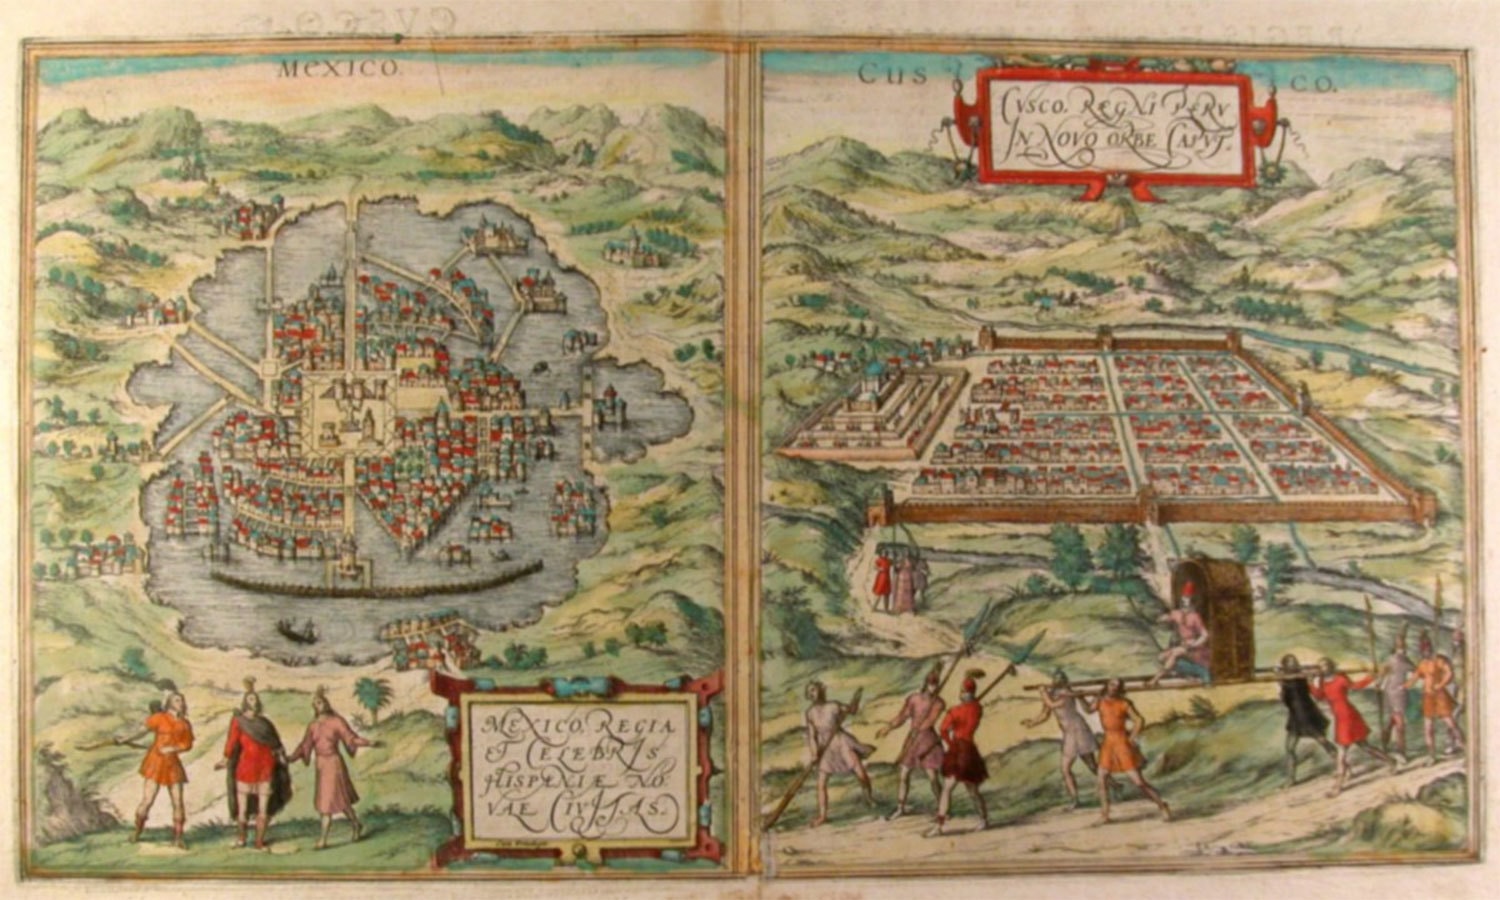 MEXICO.
CUSCO.
CVSCO, REGNI PERV
IN NOVO ORBE CAPVT.
MEXICO, REGIA
ET CELEBRIS
HISPANIÆ NO,
VAE CIVITAS.